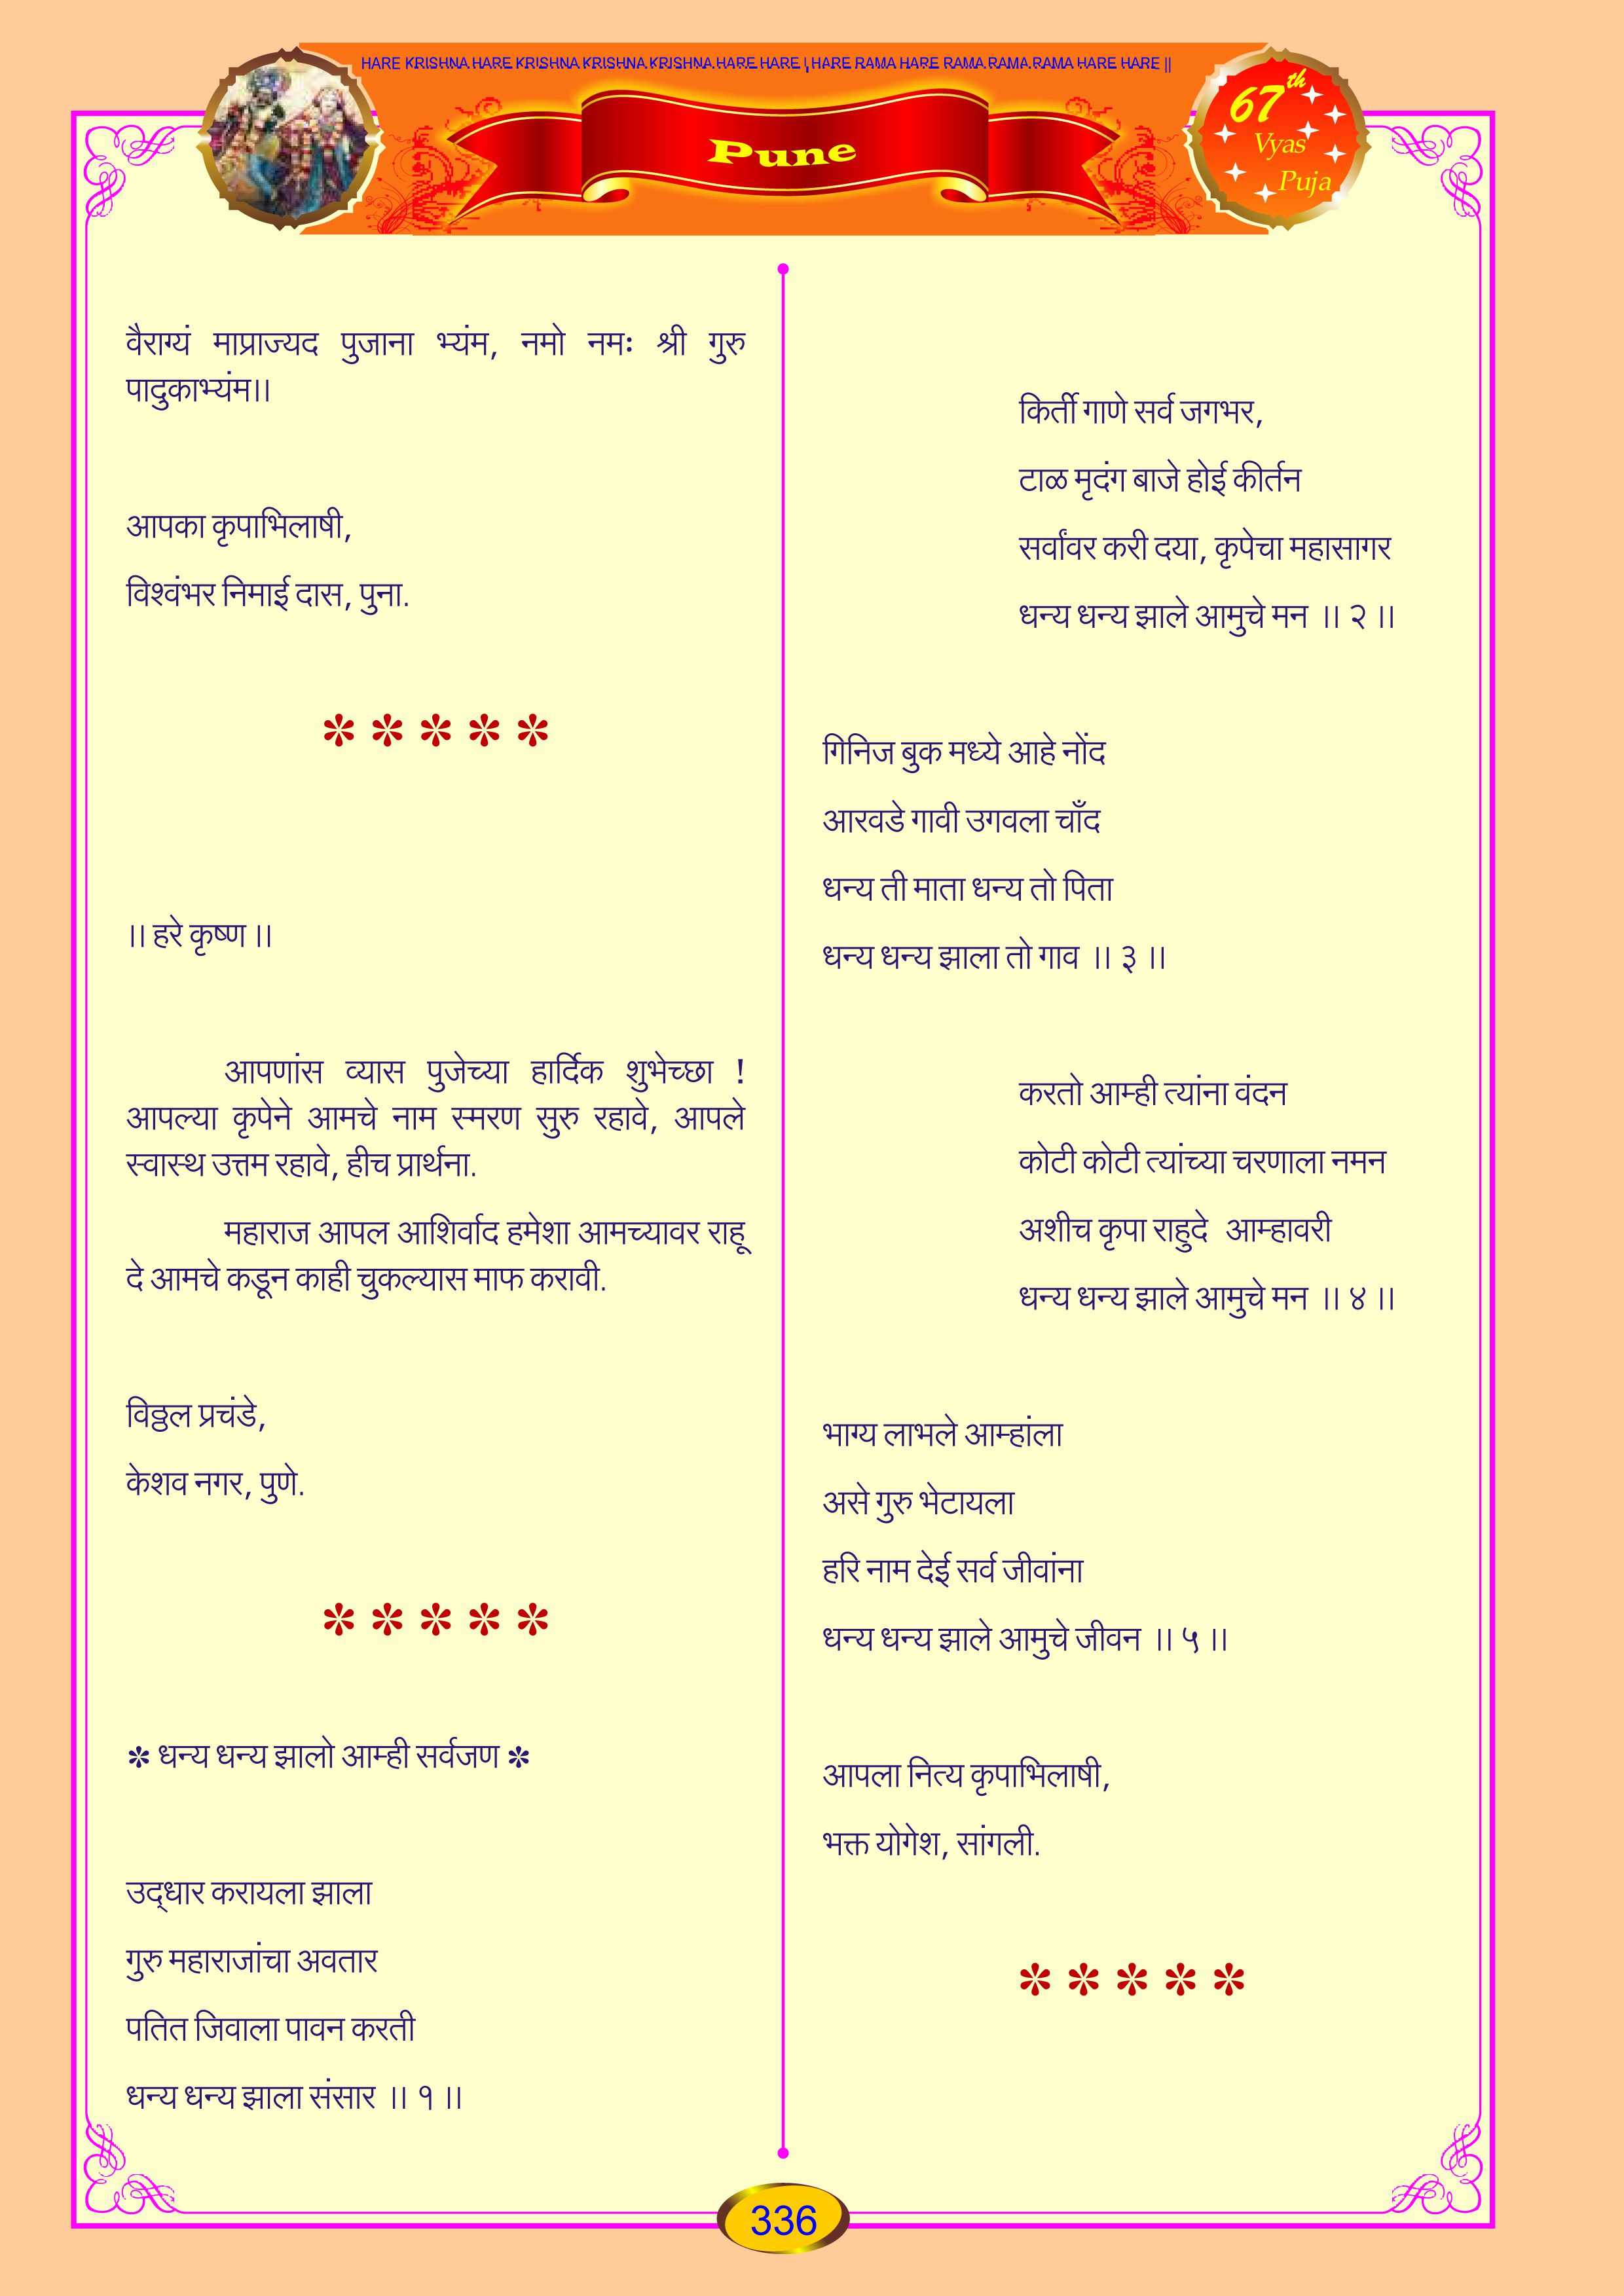 HARE KRISHNA HARE KRISHNA KRISHNA KRISHNA HARE HARE | HARE RAMA HARE RAMA RAMA RAMA HARE HARE ||
Pune
67th
Vyas
Puja
वैराग्यं माप्राज्यद पुजाना भ्यंम, नमो नमः श्री गुरु
पादुकाभ्यंम।।
आपका कृपाभिलाषी,
विश्वंभर निमाई दास, पुना.
✽ ✽ ✽ ✽ ✽
।। हरे कृष्ण ।।
आपणांस व्यास पुजेच्या हार्दिक शुभेच्छा !
आपल्या कृपेने आमचे नाम स्मरण सुरु रहावे, आपले
स्वास्थ उत्तम रहावे, हीच प्रार्थना.
महाराज आपल आशिर्वाद हमेशा आमच्यावर राहू
दे आमचे कडून काही चुकल्यास माफ करावी.
विठ्ठल प्रचंडे,
केशव नगर, पुणे.
✽ ✽ ✽ ✽ ✽
✽ धन्य धन्य झालो आम्ही सर्वजण ✽
उद्धार करायला झाला
गुरु महाराजांचा अवतार
पतित जिवाला पावन करती
धन्य धन्य झाला संसार ।। १ ।।
किर्ती गाणे सर्व जगभर,
टाळ मृदंग बाजे होई कीर्तन
सर्वांवर करी दया, कृपेचा महासागर
धन्य धन्य झाले आमुचे मन ।। २ ।।
गिनिज बुक मध्ये आहे नोंद
आरवडे गावी उगवला चाँद
धन्य ती माता धन्य तो पिता
धन्य धन्य झाला तो गाव ।। ३ ।।
करतो आम्ही त्यांना वंदन
कोटी कोटी त्यांच्या चरणाला नमन
अशीच कृपा राहुदे आम्हावरी
धन्य धन्य झाले आमुचे मन ।। ४ ।।
भाग्य लाभले आम्हांला
असे गुरु भेटायला
हरि नाम देई सर्व जीवांना
धन्य धन्य झाले आमुचे जीवन ।। ५ ।।
आपला नित्य कृपाभिलाषी,
भक्त योगेश, सांगली.
✽ ✽ ✽ ✽ ✽
336